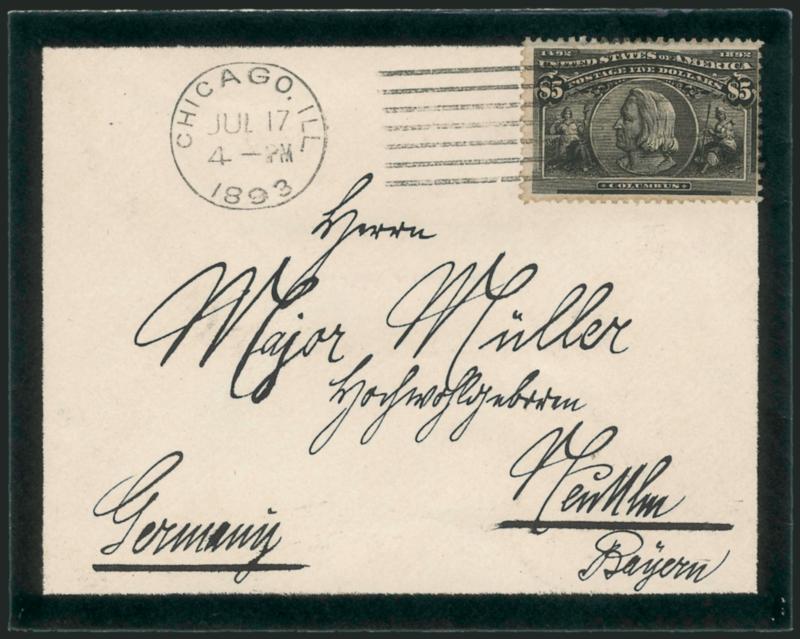 CHICAGO, ILL.
JUL 17
4 - PM
1893
1492 1892
UNITED STATES OF AMERICA
POSTAGE FIVE DOLLARS
$5 $5
COLUMBUS
Herrn
Major Müller
Hochwohlgeborn
Neu Ulm
Germany
Bayern